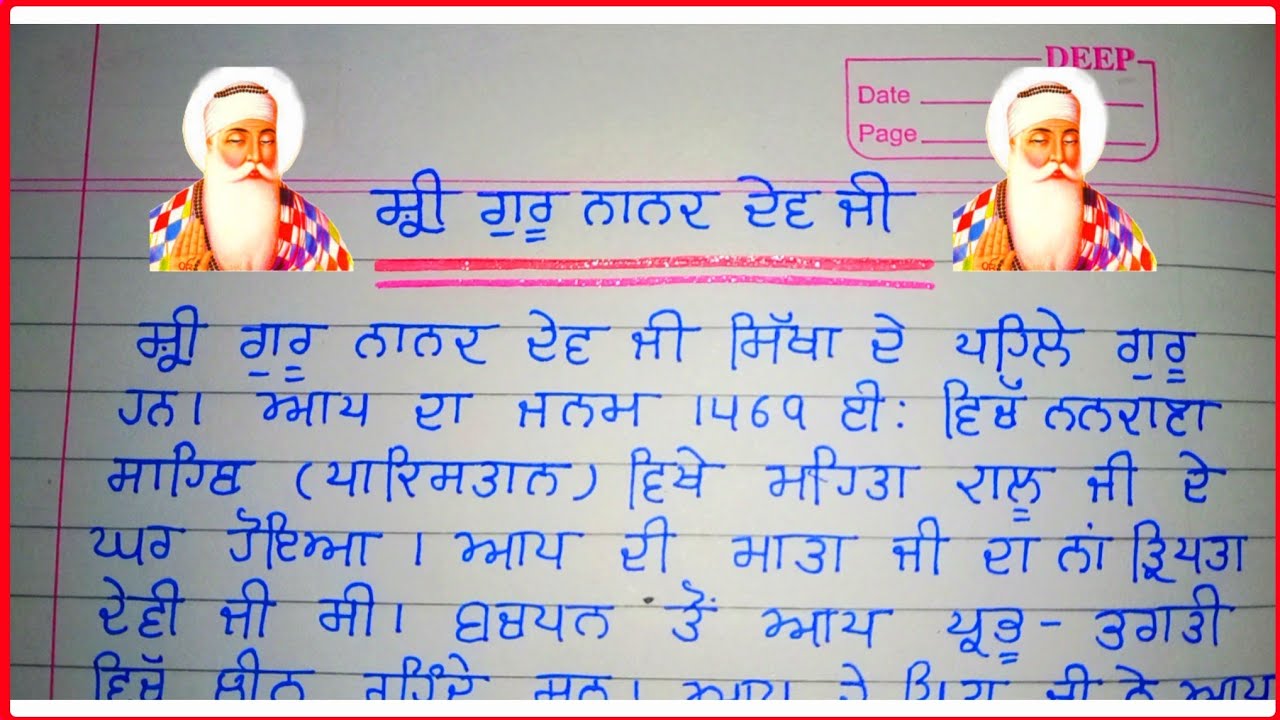 DEEP
Date
Page
ਸ਼੍ਰੀ ਗੁਰੂ ਨਾਨਕ ਦੇਵ ਜੀ
ਸ਼੍ਰੀ ਗੁਰੂ ਨਾਨਕ ਦੇਵ ਜੀ ਸਿੱਖਾ ਦੇ ਪਹਿਲੇ ਗੁਰੂ
ਹਨ। ਆਪ ਦਾ ਜਨਮ 1469 ਈ: ਵਿੱਚ ਨਨਕਾਣਾ
ਸਾਹਿਬ (ਪਾਕਿਸਤਾਨ) ਵਿਖੇ ਮਹਿਤਾ ਕਾਲੂ ਜੀ ਦੇ
ਘਰ ਹੋਇਆ। ਆਪ ਦੀ ਮਾਤਾ ਜੀ ਦਾ ਨਾਂ ਤ੍ਰਿਪਤਾ
ਦੇਵੀ ਜੀ ਸੀ। ਬਚਪਨ ਤੋਂ ਆਪ ਪ੍ਰਭੂ - ਭਗਤੀ
ਵਿੱਚ ਲੀਨ ਰਹਿੰਦੇ ਸਨ। ਆਪ ਦੇ ਪਿਤਾ ਜੀ ਨੇ ਆਪ